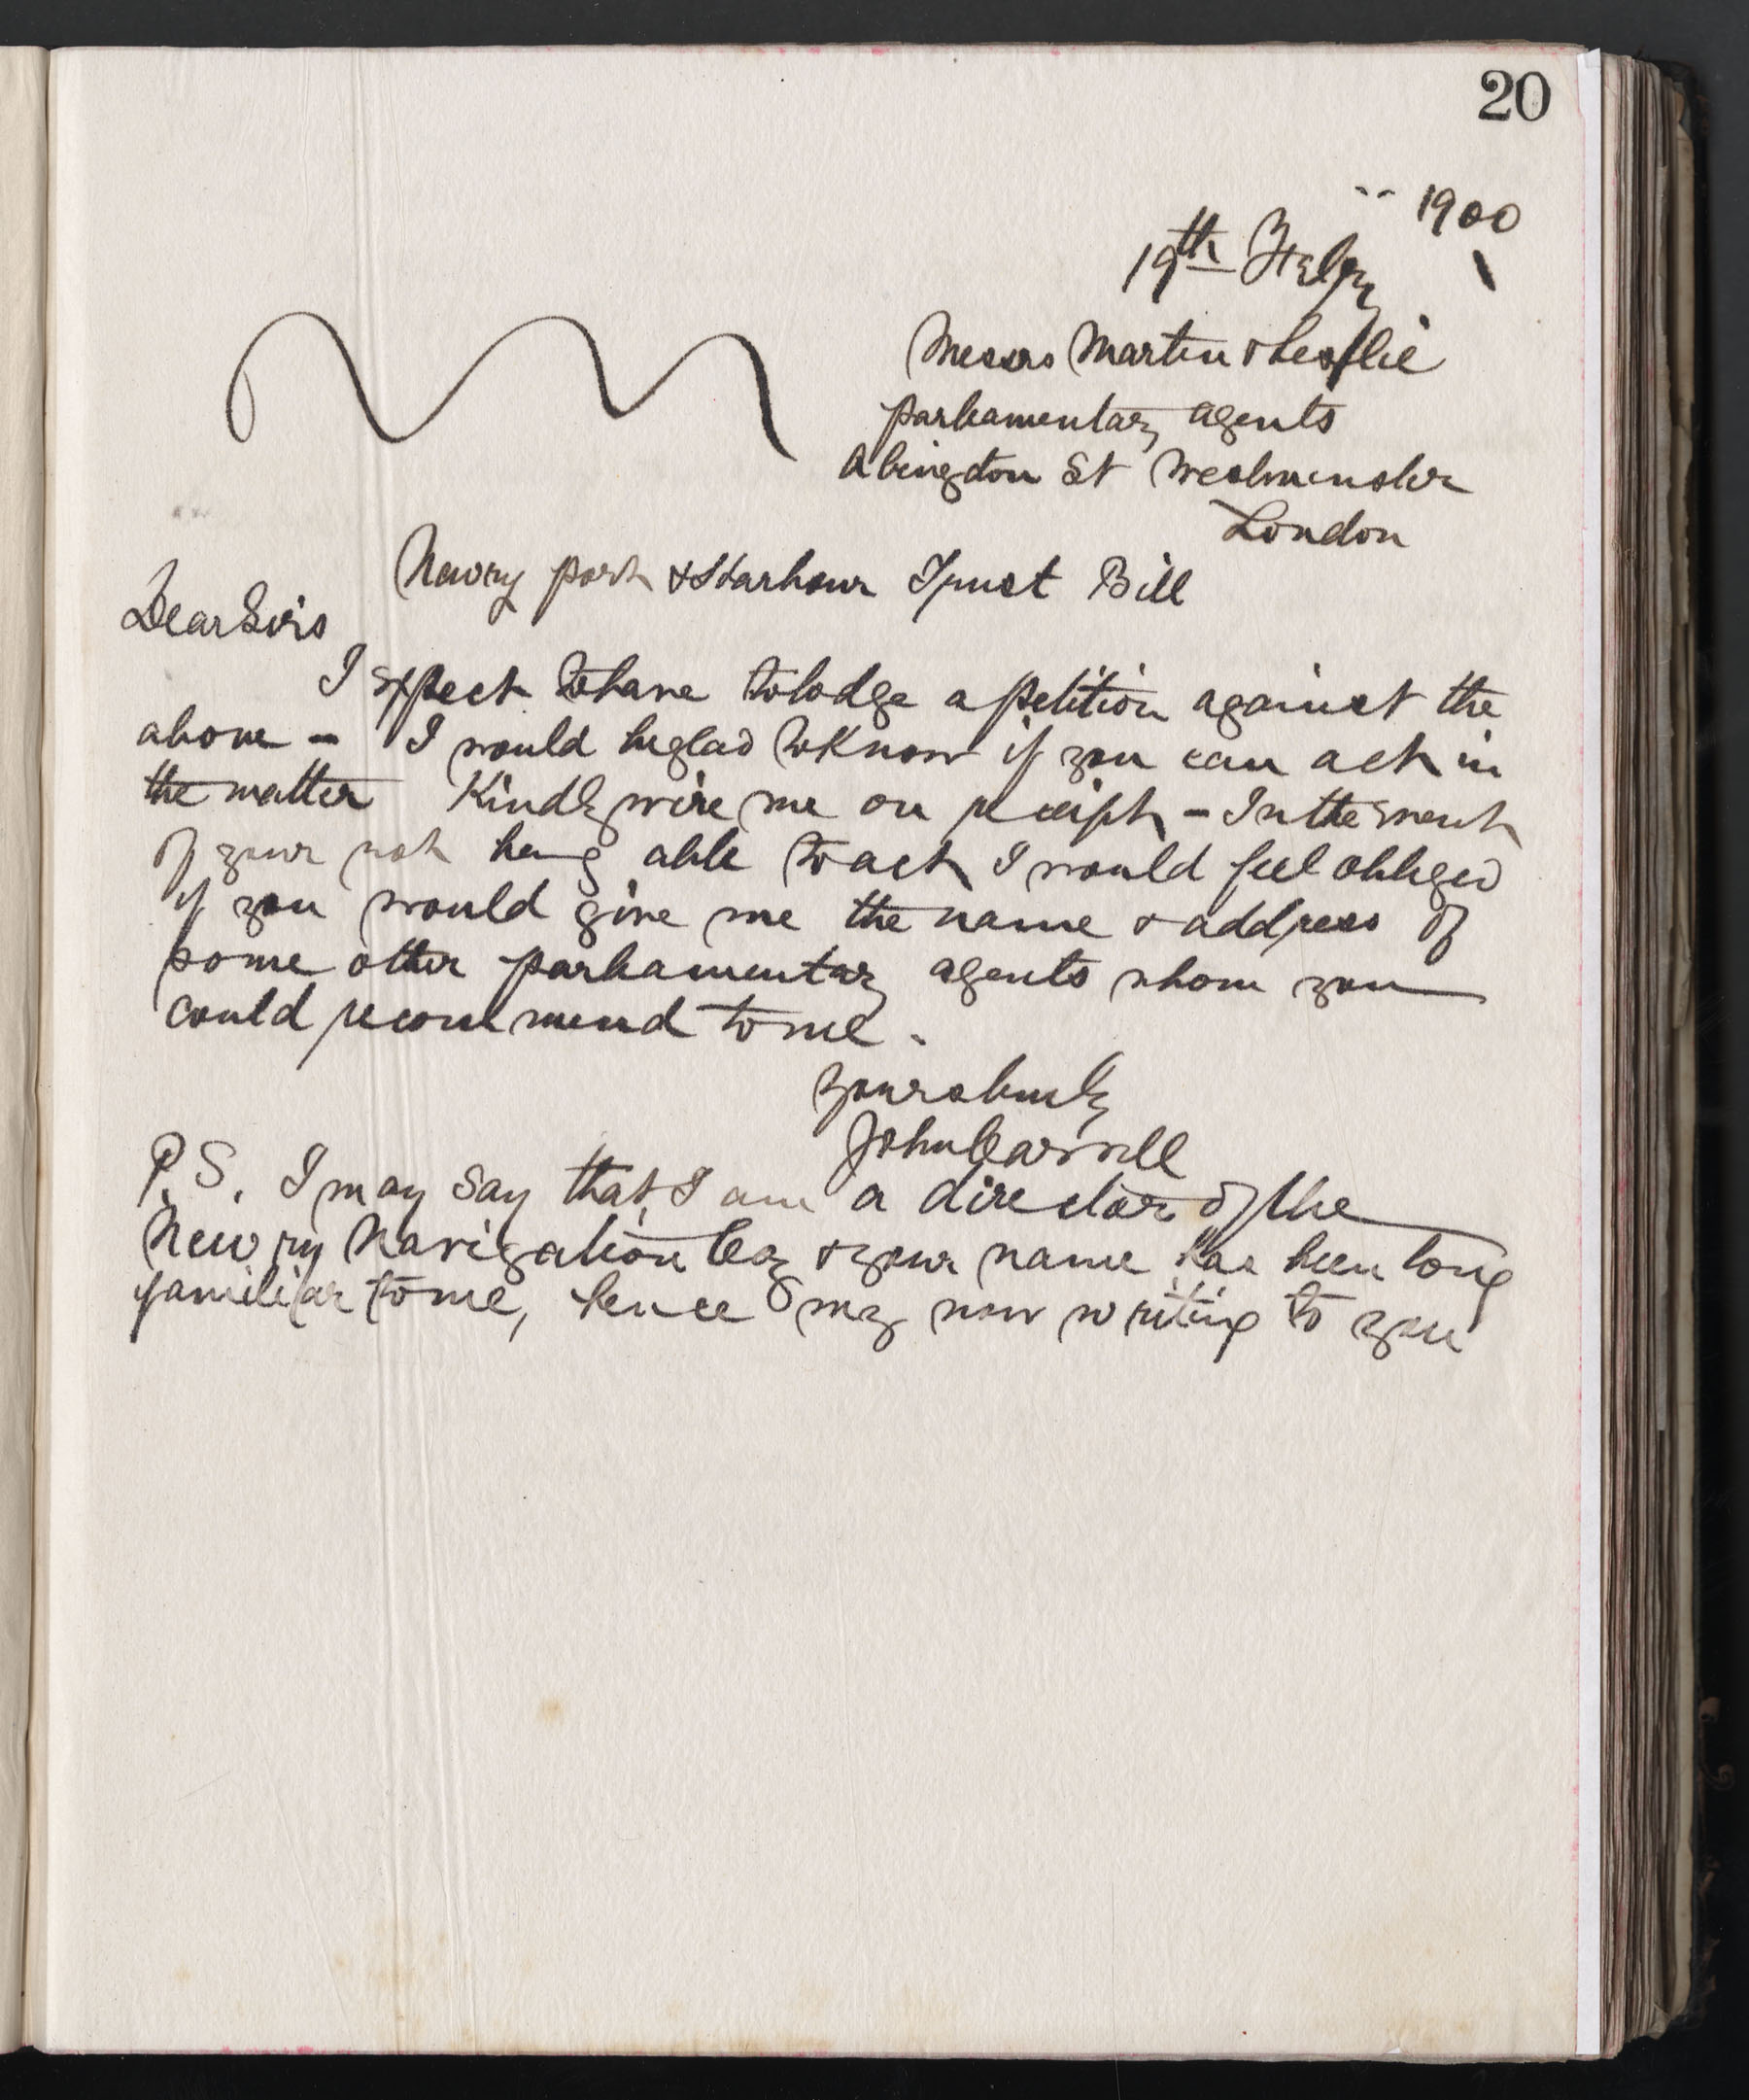 20
1900
19th Feby
Messrs Martin & Leslie
parliamentary agents
Abingdon St Westminster
London
Newry port & Harbour Trust Bill
Dear Sirs
I expect to have to lodge a petition against the
above - I would be glad to know if you can act in
the matter Kindly wire me on receipt - In the event
of your not being able to act I would feel obliged
if you would give me the name & address of
some other parliamentary agents whom you
could recommend to me.
Yours truly
John Carvill
P.S. I may say that I am a director of the
Newry Navigation Coy & your name has been long
familiar to me, hence my now writing to you